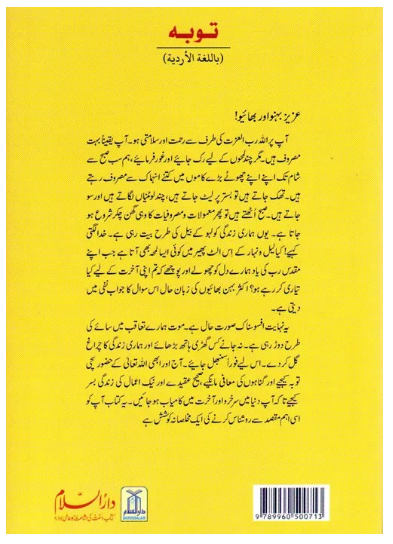 توبہ
(باللغة الأردية)
عزیز بہنو اور بھائیو!
آپ پر اللہ رب العزت کی طرف سے رحمت اور سلامتی ہو۔ آپ یقیناً بہت
مصروف ہیں۔ مگر چند لمحوں کے لیے رک جائیے اور غور فرمائیے، ہم سب صبح سے
شام تک اپنے اپنے چھوٹے بڑے کاموں میں کتنے انہماک سے مصروف رہتے
ہیں۔ تھک جاتے ہیں تو بستر پر لیٹ جاتے ہیں، چند لوٹنیاں لگاتے ہیں اور سو
جاتے ہیں۔ صبح اُٹھتے ہیں تو پھر معمولات و مصروفیات کا وہی گھن چکر شروع ہو
جاتا ہے۔ یوں ہماری زندگی کولہو کے بیل کی طرح بیت رہی ہے۔ خدا لگتی
کہیے! کیا لیل و نہار کے اِس الٹ پھیر میں کوئی ایسا لمحہ بھی آتا ہے جب اپنے
مقدس رب کی یاد ہمارے دل کو چھولے اور پوچھے کہ تم اپنی آخرت کے لیے کیا
تیاری کر رہے ہو؟ اکثر بہن بھائیوں کی زبان حال اس سوال کا جواب نفی میں
دیتی ہے۔
یہ نہایت افسوسناک صورت حال ہے۔ موت ہمارے تعاقب میں سائے کی
طرح دوڑ رہی ہے۔ نہ جانے کس گھڑی ہاتھ بڑھائے اور ہماری زندگی کا چراغ
گل کر دے۔ اس لیے فوراً سنبھل جائیے۔ آج اور ابھی اللہ تعالیٰ کے حضور سچی
توبہ کیجیے اور گناہوں کی معافی مانگیے، صحیح عقیدے اور نیک اعمال کی زندگی بسر
کیجیے تاکہ آپ دنیا میں سرخرو اور آخرت میں کامیاب ہو جائیں۔ یہ کتاب آپ کو
اسی اہم مقصد سے روشناس کرنے کی ایک مخلصانہ کوشش ہے
دارالسلام
DARUSSALAM
9 789960 500713